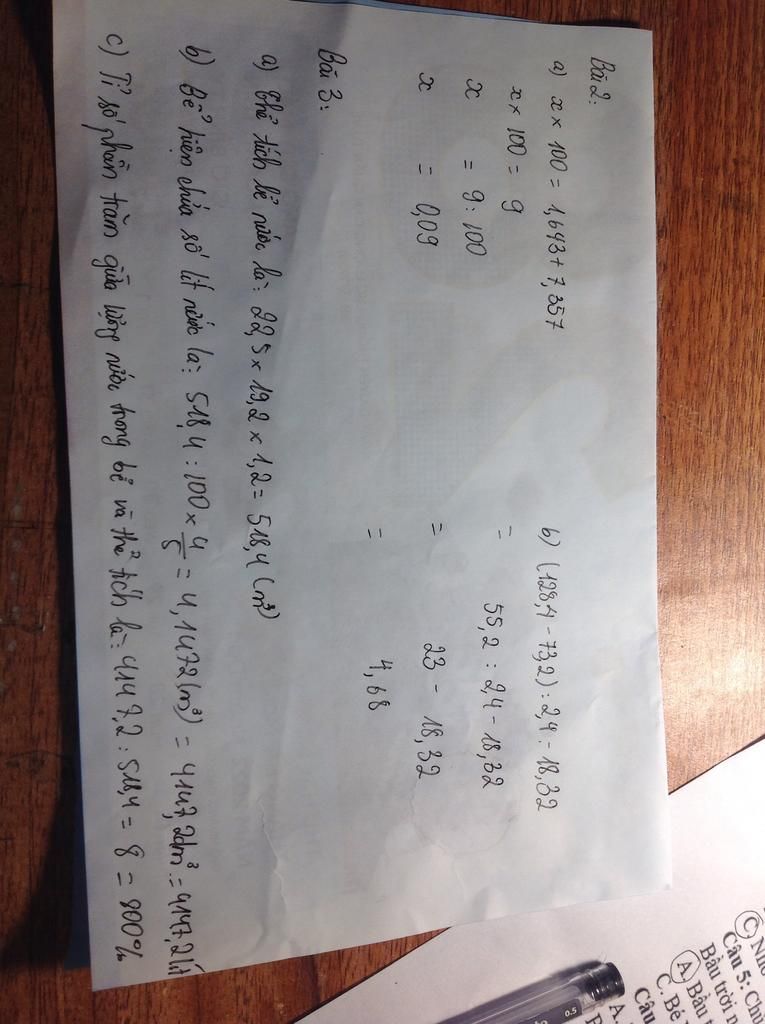 Bài 2:
a) x × 100 = 1,643 + 7,357
x × 100 = 9
x = 9 : 100
x = 0,09
b) (128,4 - 73,2) : 2,4 - 18,32
= 55,2 : 2,4 - 18,32
= 23 - 18,32
= 4,68
Bài 3:
a) Thể tích bể nước là: 22,5 × 19,2 × 1,2 = 518,4 (m³)
b) Bể hiện chứa số lít nước là: 518,4 : 100 × 4/5 = 4,1472 (m³) = 4147,2dm³ = 4147,2 lít
c) Tỉ số phần trăm giữa lượng nước trong bể và thể tích là: 4147,2 : 518,4 = 8 = 800%
C Nhỏ
Câu 5: Chủ
Bầu trời
A Bầu
C. Bé
Câu
A.
B
0.5